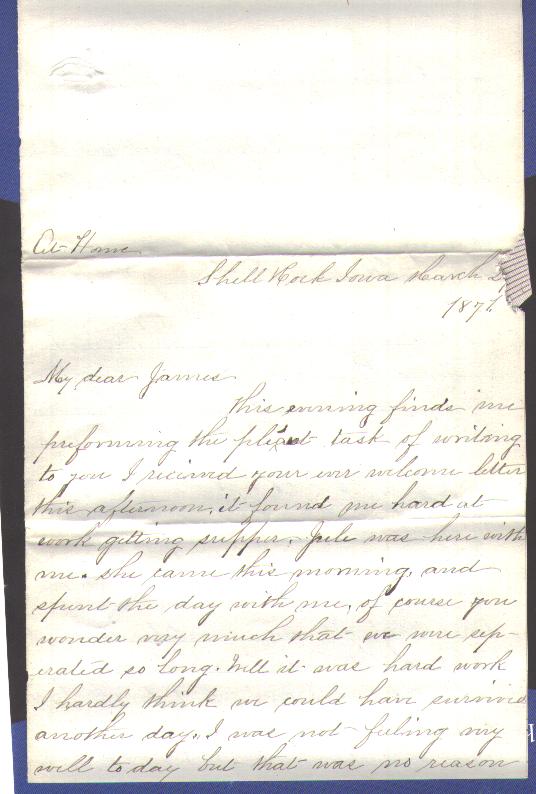 At Home
Shell Rock Iowa March 2
187
My dear James
This evening finds me
preforming the pleasant task of writing
to you I recieved your ever welcome letter
this afternoon, it found me hard at
work getting supper. Jule was here with
me. she came this morning, and
spent the day with me, of course you
wonder very much that we were sep-
erated so long. Well it was hard work
I hardly think we could have survived
another day. I was not feeling very
well to day but that was no reason